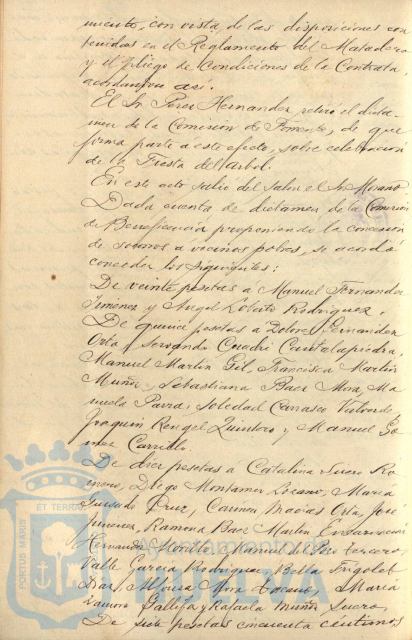 miento, con vista de las disposiciones con
tenidas en el Reglamento del Matadero
y el pliego de Condiciones de la Contrata,
acordaron así.
El Sr. Perez Hernandez retiró el dicta-
men de la Comisión de Fomento, de que
forma parte a este efecto, sobre celebración
de la Fiesta del Arbol.
En este acto salio del Salon el Sr. Morano.
Dada cuenta de dictamen de la Comisión
de Beneficencia proponiendo la concesion
de socorros a vecinos pobres, se acordó
conceder los siguientes:
De veinte pesetas a Manuel Fernandez
Jimenez y Angel Loberto Rodriguez.
De quince pesetas a Dolores Fernandez
Orta, Servando Cuadri Cantalapiedra,
Manuel Martin Gil, Francisca Martin
Muñiz, Sebastiana Baez Mora, Ma
nuela Parra, Soledad Carrasco Valverde,
Joaquin Rengel Quintero y Manuel Go
mez Carrillo.
De diez pesetas a Catalina Suero Ro
mero, Diego Montaner Lozano, Maria
Cruz, Carmen Macias Orta, José
Jimenez, Ramona Baez Martin, Encarnacion
Hernandez Morillo, Manuel tercero,
Valle Garcia Rodriguez, Bella Frigolet
Diaz, Mora Tocano, Maria
Zamora y Rafaela Muñiz Suero,
De siete pesetas cincuenta centimos
ET TERRAE
PORTUS MARIS
Ayuntamiento de
HUELVA